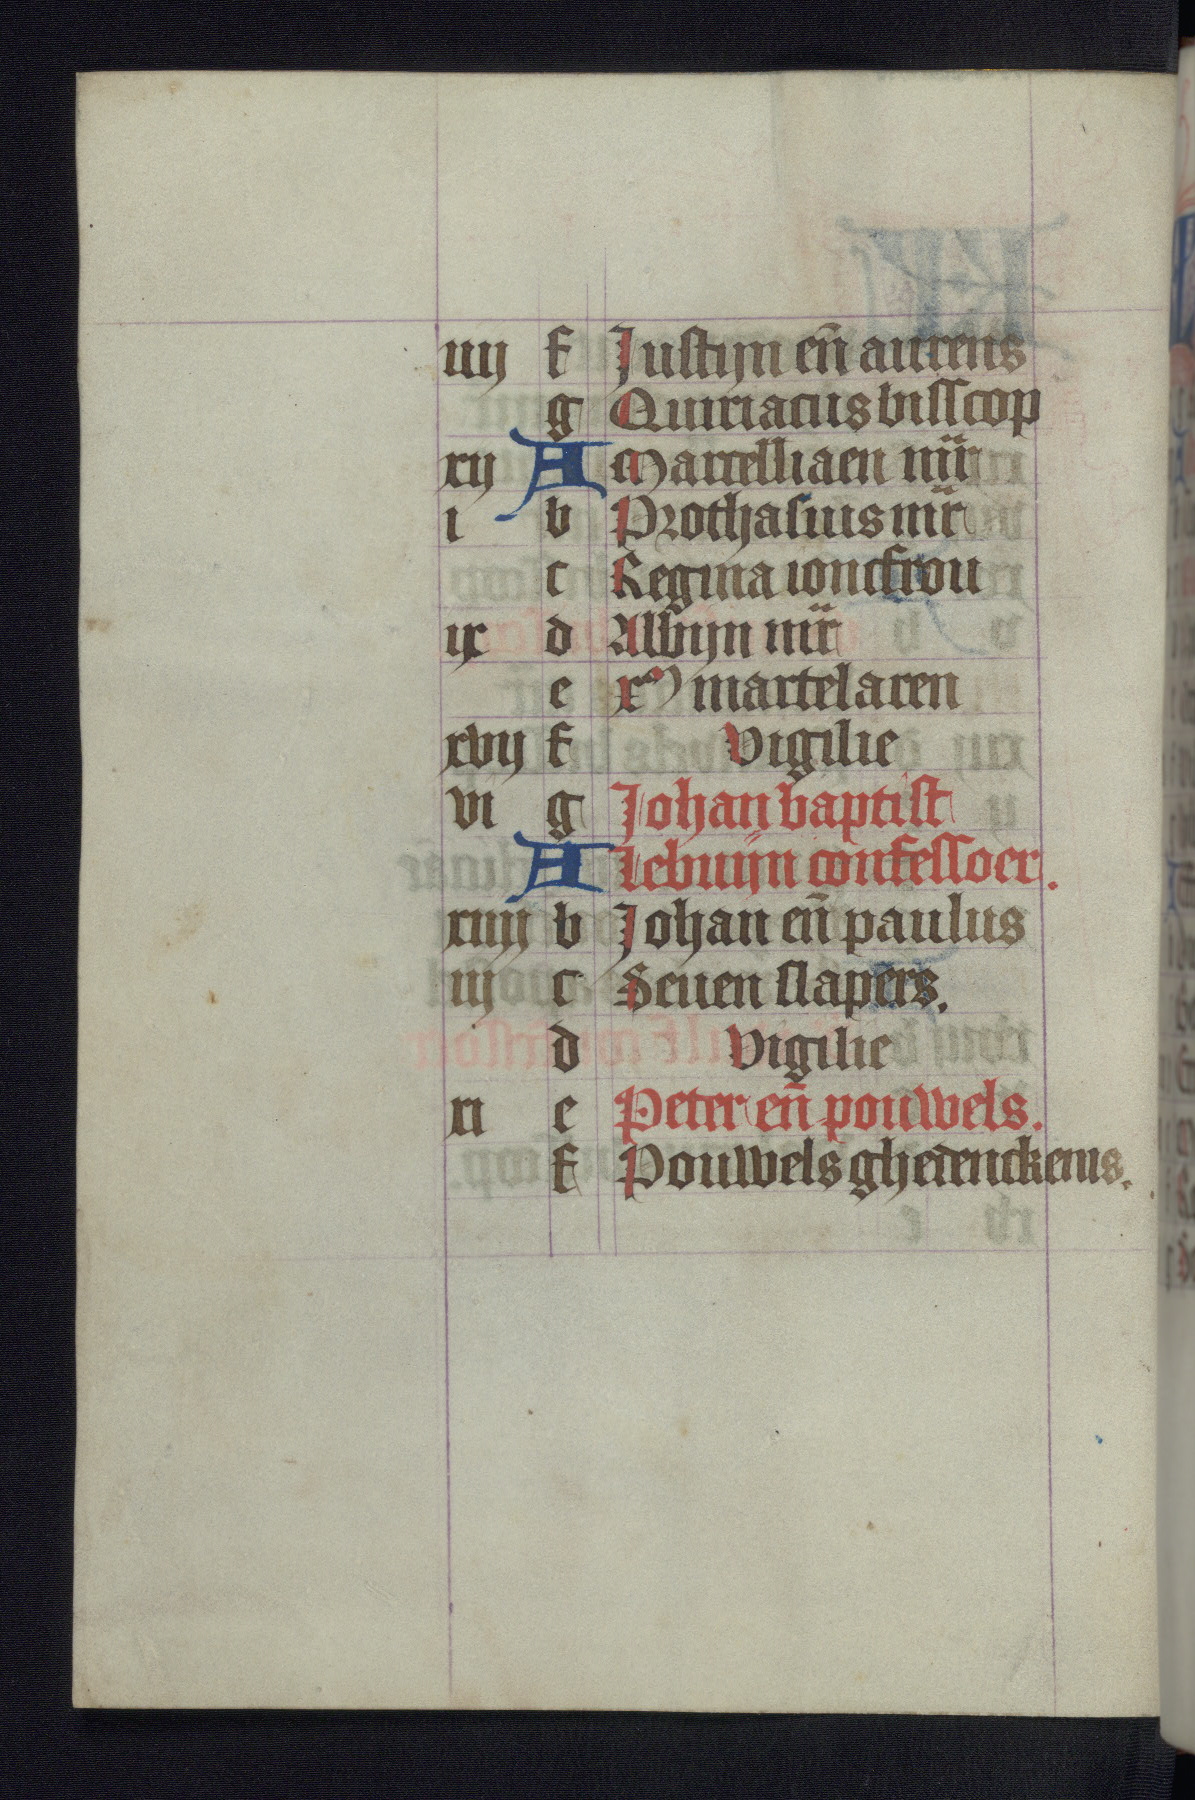 iiij f Justijn en̄ aureus
g Quiriacus bisscop
xij A Marcelliaen mr̄
i b Prothasius mr̄
c Regina ioncfrou
ix d Albijn mr̄
e xᵐ martelaren
xvij f Vigilie
vi g Johan baptist
A Lebuijn confessoer.
xiiij b Johan en̄ paulus
iij c Seuen slapers.
d Vigilie
xi e Peter en̄ pouwels.
f Pouwels ghedenckenis.